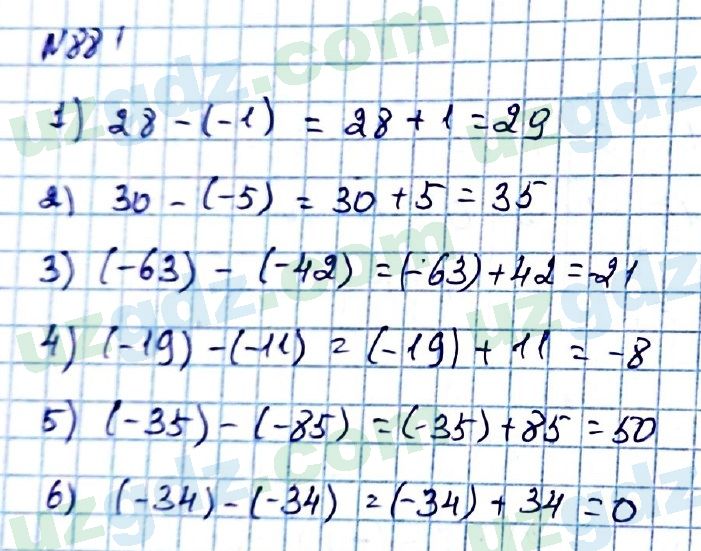 №881
1) 28 - (-1) = 28 + 1 = 29
2) 30 - (-5) = 30 + 5 = 35
3) (-63) - (-42) = (-63) + 42 = -21
4) (-19) - (-11) = (-19) + 11 = -8
5) (-35) - (-85) = (-35) + 85 = 50
6) (-34) - (-34) = (-34) + 34 = 0
uzgdz.com